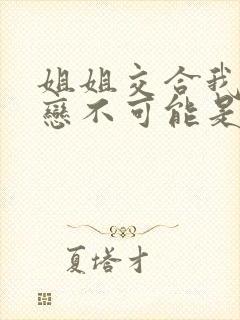 姐姐交合我
戀不可能是
夏塔才